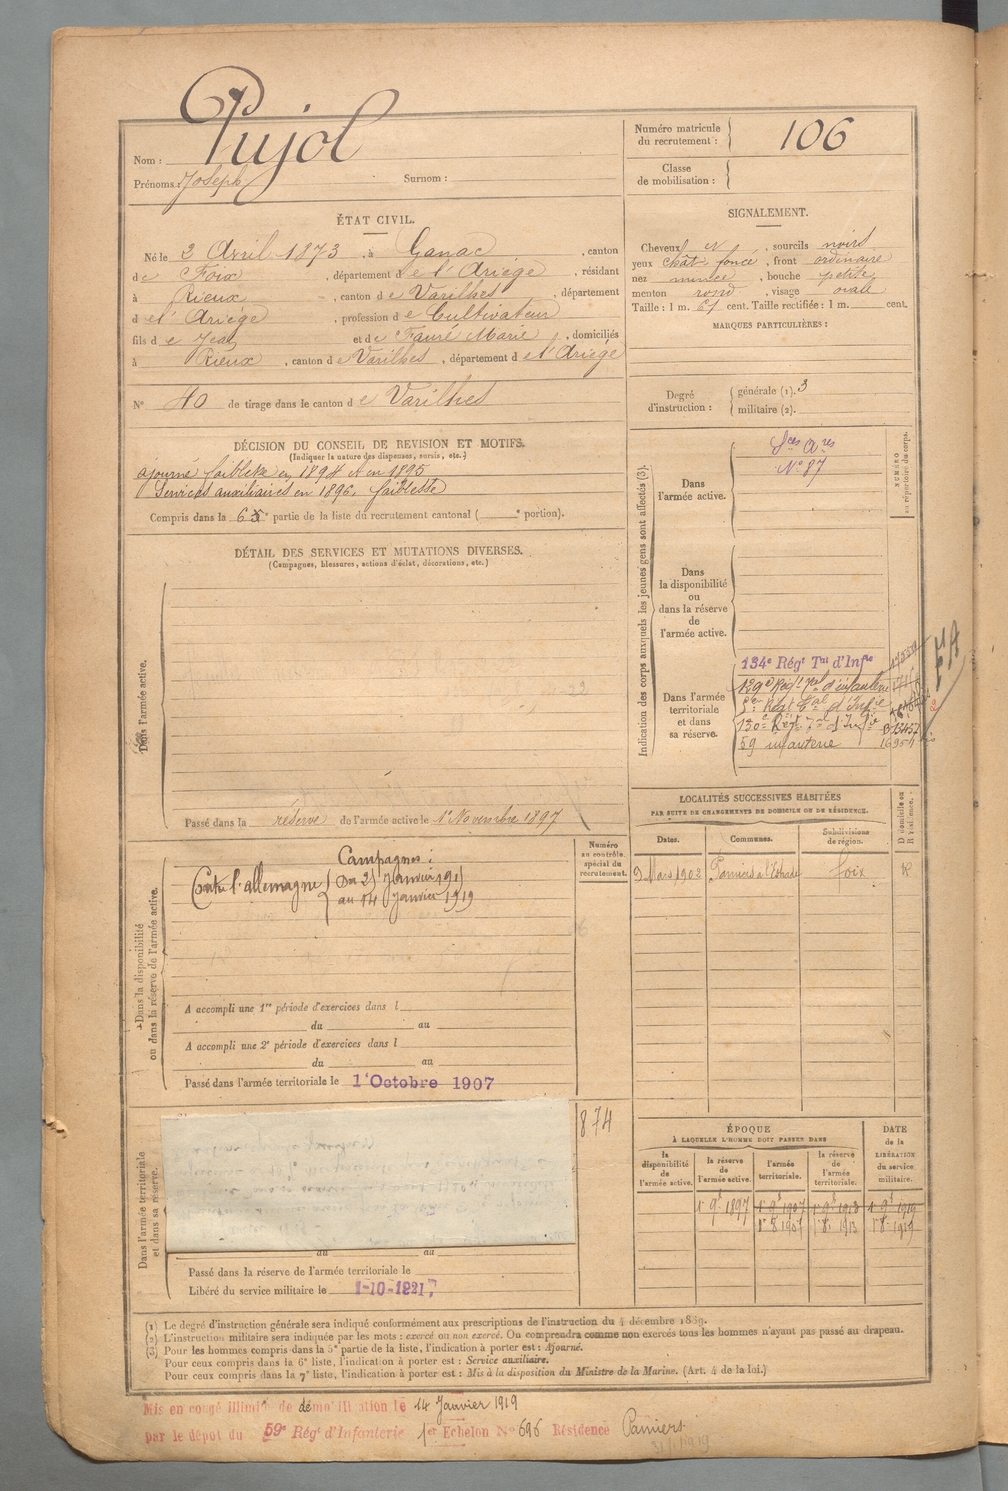 Nom : Pujol
Prénoms : Joseph Surnom :
Numéro matricule du recrutement : 106
Classe de mobilisation :
ÉTAT CIVIL.
Né le 2 Avril 1873, à Ganac, canton
de Foix, département de l'Ariège, résidant
à Rieux, canton de Varilhes, département
de l'Ariège, profession de Cultivateur
fils de Jean et de Fauré Marie, domiciliés
à Rieux, canton de Varilhes, département de l'Ariège
N° 40 de tirage dans le canton de Varilhes
SIGNALEMENT.
Cheveux N, sourcils noirs
yeux chât foncé, front ordinaire
nez mince, bouche petite
menton rond, visage ovale
Taille : 1 m. 61 cent. Taille rectifiée : 1 m. cent.
MARQUES PARTICULIÈRES :
Degré d'instruction : générale (1). 3
militaire (2).
DÉCISION DU CONSEIL DE REVISION ET MOTIFS.
(Indiquer la nature des dispenses, sursis, etc.)
ajourné faiblesse en 1894 et en 1895
Services auxiliaires en 1896, faiblesse
Compris dans la 6e partie de la liste du recrutement cantonal ( e portion).
DÉTAIL DES SERVICES ET MUTATIONS DIVERSES.
(Campagnes, blessures, actions d'éclat, décorations, etc.)
Dans l'armée active.
Passé dans la réserve de l'armée active le 1er Novembre 1897
Indication des corps auxquels les jeunes gens sont affectés (3).
NUMÉRO au répertoire du corps.
Dans l'armée active.
Sces Ares
N° 87
Dans la disponibilité ou dans la réserve de l'armée active.
Dans l'armée territoriale et dans sa réserve.
134e Régt Tal d'Infie
129e Régt Tal d'infanterie
130e Régt Tal d'Infie
59 infanterie
LOCALITÉS SUCCESSIVES HABITÉES
PAR SUITE DE CHANGEMENTS DE DOMICILE OU DE RÉSIDENCE.
Dates. Communes. Subdivisions de région. Domicile ou Résidence.
9 Mars 1902 Pamiers Foix R
Dans la disponibilité ou dans la réserve de l'armée active.
Numéro au contrôle spécial du recrutement.
Campagnes :
Contre l'allemagne
au 14 Janvier 1919
A accompli une 1re période d'exercices dans l
du au
A accompli une 2e période d'exercices dans l
du au
Passé dans l'armée territoriale le 1er Octobre 1907
Dans l'armée territoriale et dans sa réserve.
874
du au
Passé dans la réserve de l'armée territoriale le
Libéré du service militaire le 1-10-1921
ÉPOQUE
À LAQUELLE L'HOMME DOIT PASSER DANS
DATE de la LIBÉRATION du service militaire.
la disponibilité de l'armée active. la réserve de l'armée active. l'armée territoriale. la réserve de l'armée territoriale.
1er 9e 1897 1er 9e 1907 1er 9e 1913 1er 9e 1919
1er 8e 1907 1er 8e 1913 1er 8e 1919
(1) Le degré d'instruction générale sera indiqué conformément aux prescriptions de l'instruction du 4 décembre 1889.
(2) L'instruction militaire sera indiquée par les mots : exercé ou non exercé. On comprendra comme non exercés tous les hommes n'ayant pas passé au drapeau.
(3) Pour les hommes compris dans la 5e partie de la liste, l'indication à porter est : Ajourné.
Pour ceux compris dans la 6e liste, l'indication à porter est : Service auxiliaire.
Pour ceux compris dans la 7e liste, l'indication à porter est : Mis à la disposition du Ministre de la Marine. (Art. 4 de la loi.)
Mis en congé illimité de démobilisation le 14 Janvier 1919
par le dépôt du 59e Régt d'Infanterie 1er Echelon N° 696 Résidence Pamiers